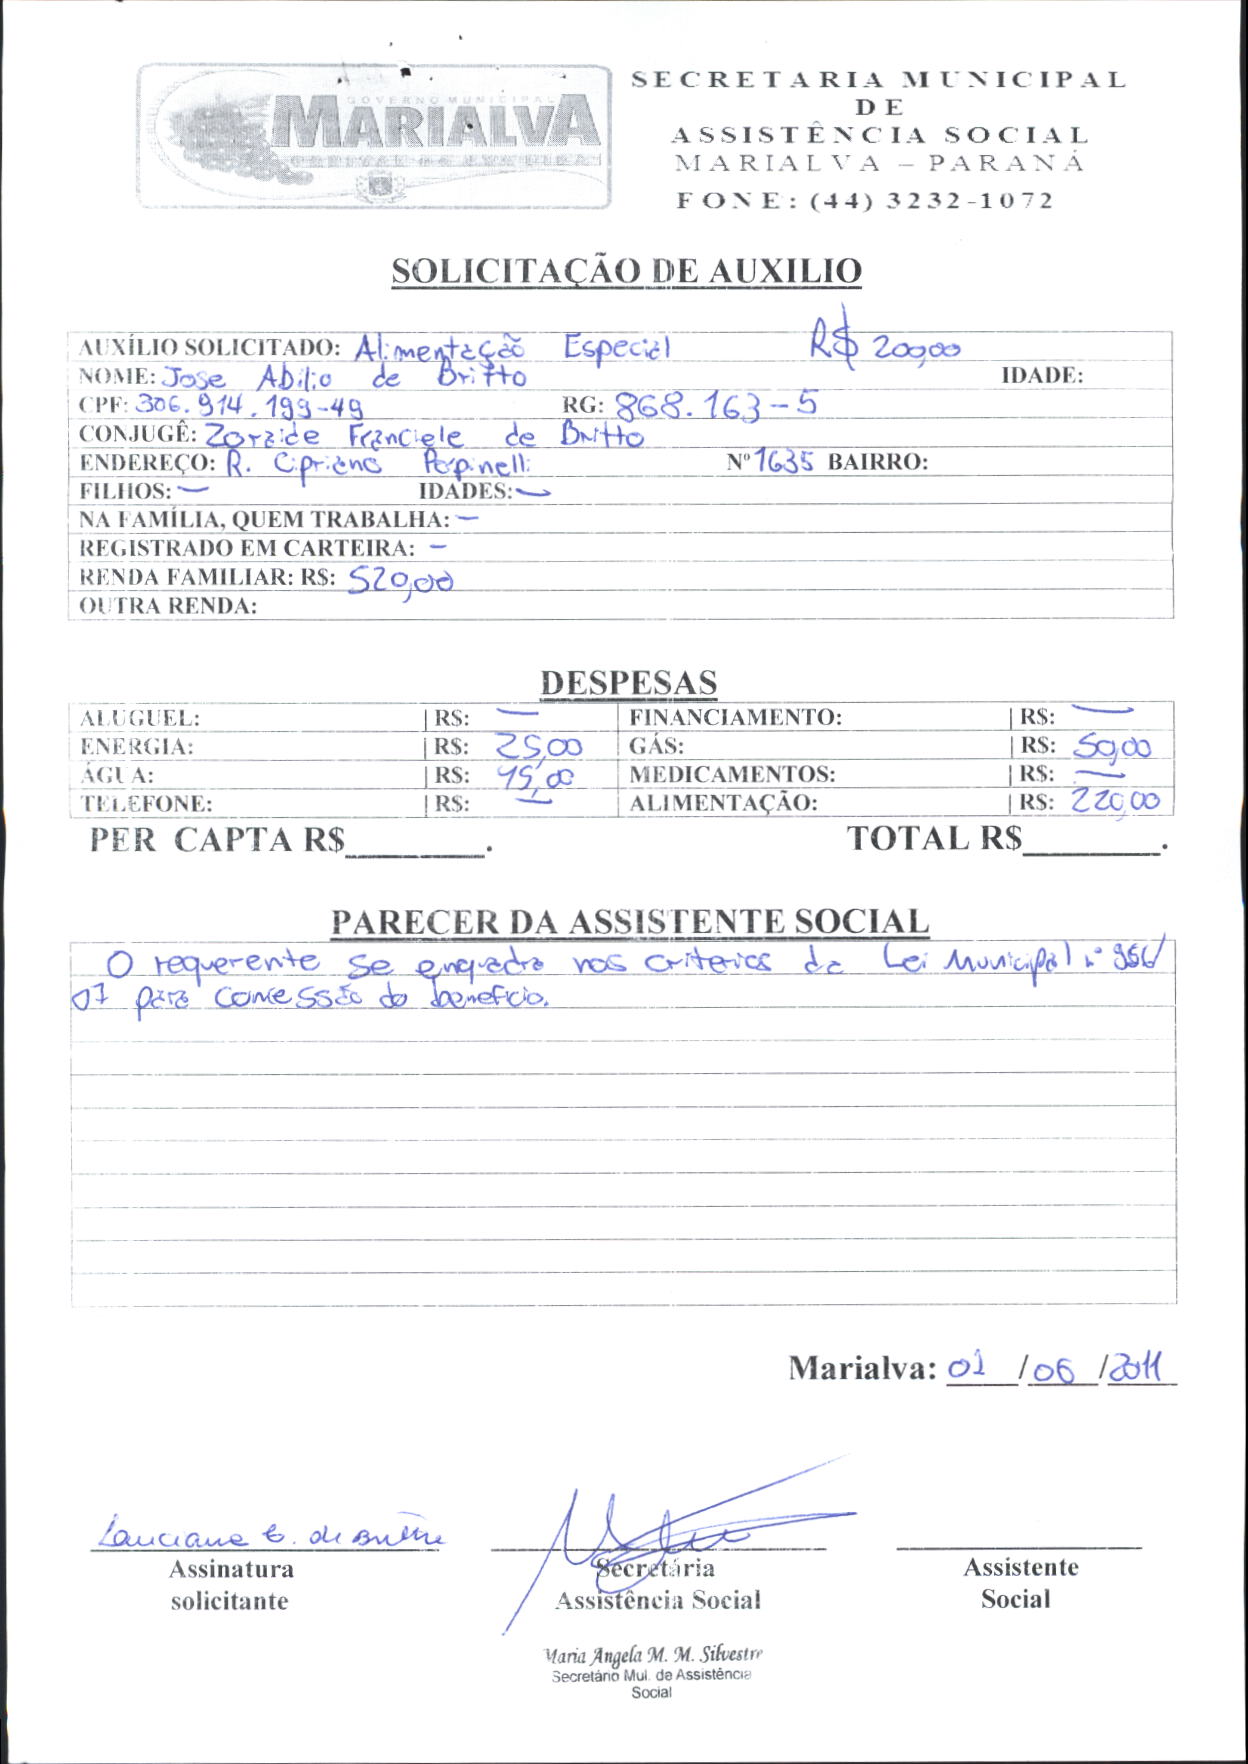 GOVERNO MUNICIPAL
MARIALVA
SECRETARIA MUNICIPAL
DE
ASSISTÊNCIA SOCIAL
MARIALVA – PARANÁ
FONE: (44) 3232-1072
SOLICITAÇÃO DE AUXILIO
AUXÍLIO SOLICITADO: Alimentação Especial R$ 200,00
NOME: Jose Abilio de Britto IDADE:
CPF: 306.914.199-49 RG: 868.163-5
CONJUGÊ: Zoraide Franciele de Britto
ENDEREÇO: R. Cipriano Nº 1635 BAIRRO:
FILHOS: — IDADES: —
NA FAMÍLIA, QUEM TRABALHA: —
REGISTRADO EM CARTEIRA: —
RENDA FAMILIAR: R$: 520,00
OUTRA RENDA:
DESPESAS
ALUGUEL: R$: — FINANCIAMENTO: R$: —
ENERGIA: R$: 25,00 GÁS: R$: 50,00
ÁGUA: R$: MEDICAMENTOS: R$: —
TELEFONE: R$: — ALIMENTAÇÃO: R$: 220,00
PER CAPTA R$________. TOTAL R$________.
PARECER DA ASSISTENTE SOCIAL
O requerente se enquadra nos criterios da Lei Municipal nº 956/
07 para concessão do beneficio.
Marialva: 01 /06 /2011
de
Assinatura Secretária Assistente
solicitante Assistência Social Social
Maria Angela M. M. Silvestre
Secretário Mul. de Assistência
Social